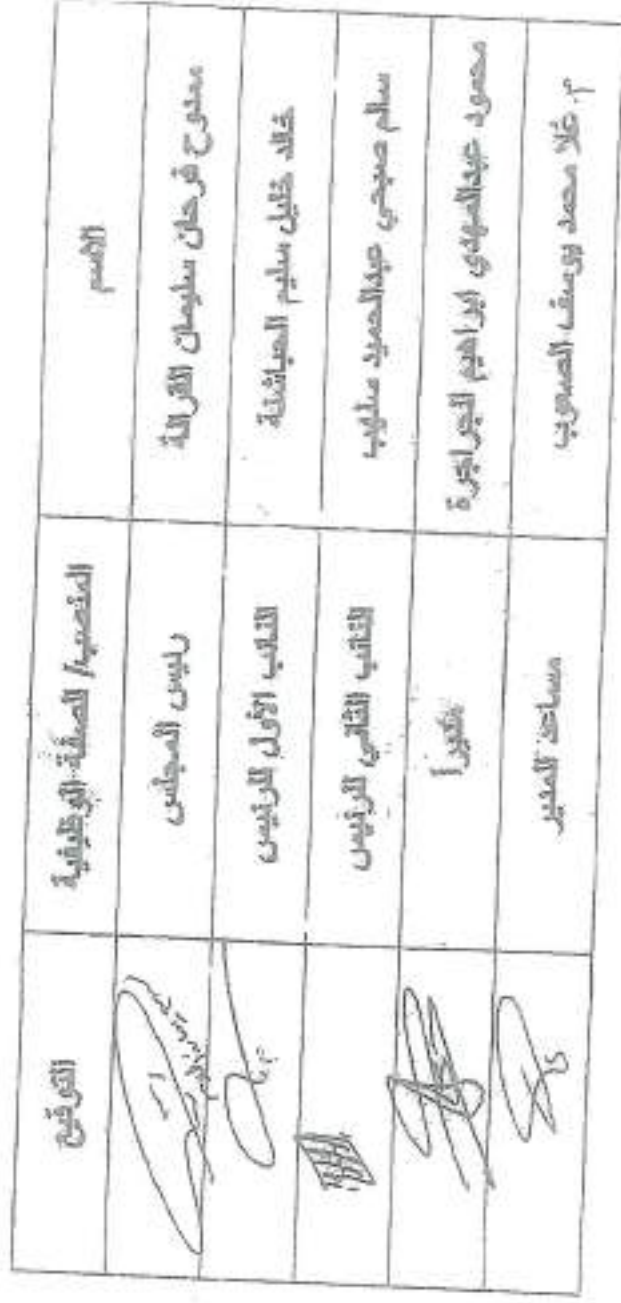 الاسم المنصب/ الصفة الوظيفية التوقيع
ممدوح فرحان سليمان القرالة رئيس المجلس
خالد خليل سليم الحباشنة النائب الأول للرئيس
سالم صبحي عبدالحميد سلهب النائب الثاني للرئيس
محمود عبدالمهدي ابراهيم الجراجرة
م. علا محمد يوسف الصعوب مساعد المدير